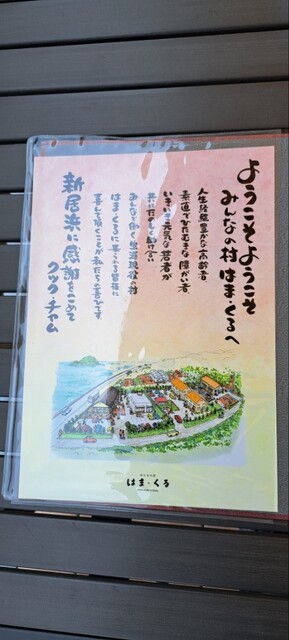 ようこそようこそ
みんなの村 はま・くるへ
人生経験豊かな高齢者
素直でひたむきな障がい者
いきいき元気な若者が
共にたのしく助け合い
みんなで働く生涯現役の村
はま・くるに来られる皆様に
喜んで頂くことが私たちの喜びです
新居浜に感謝をこめて
ワクワクチーム
はま・くる